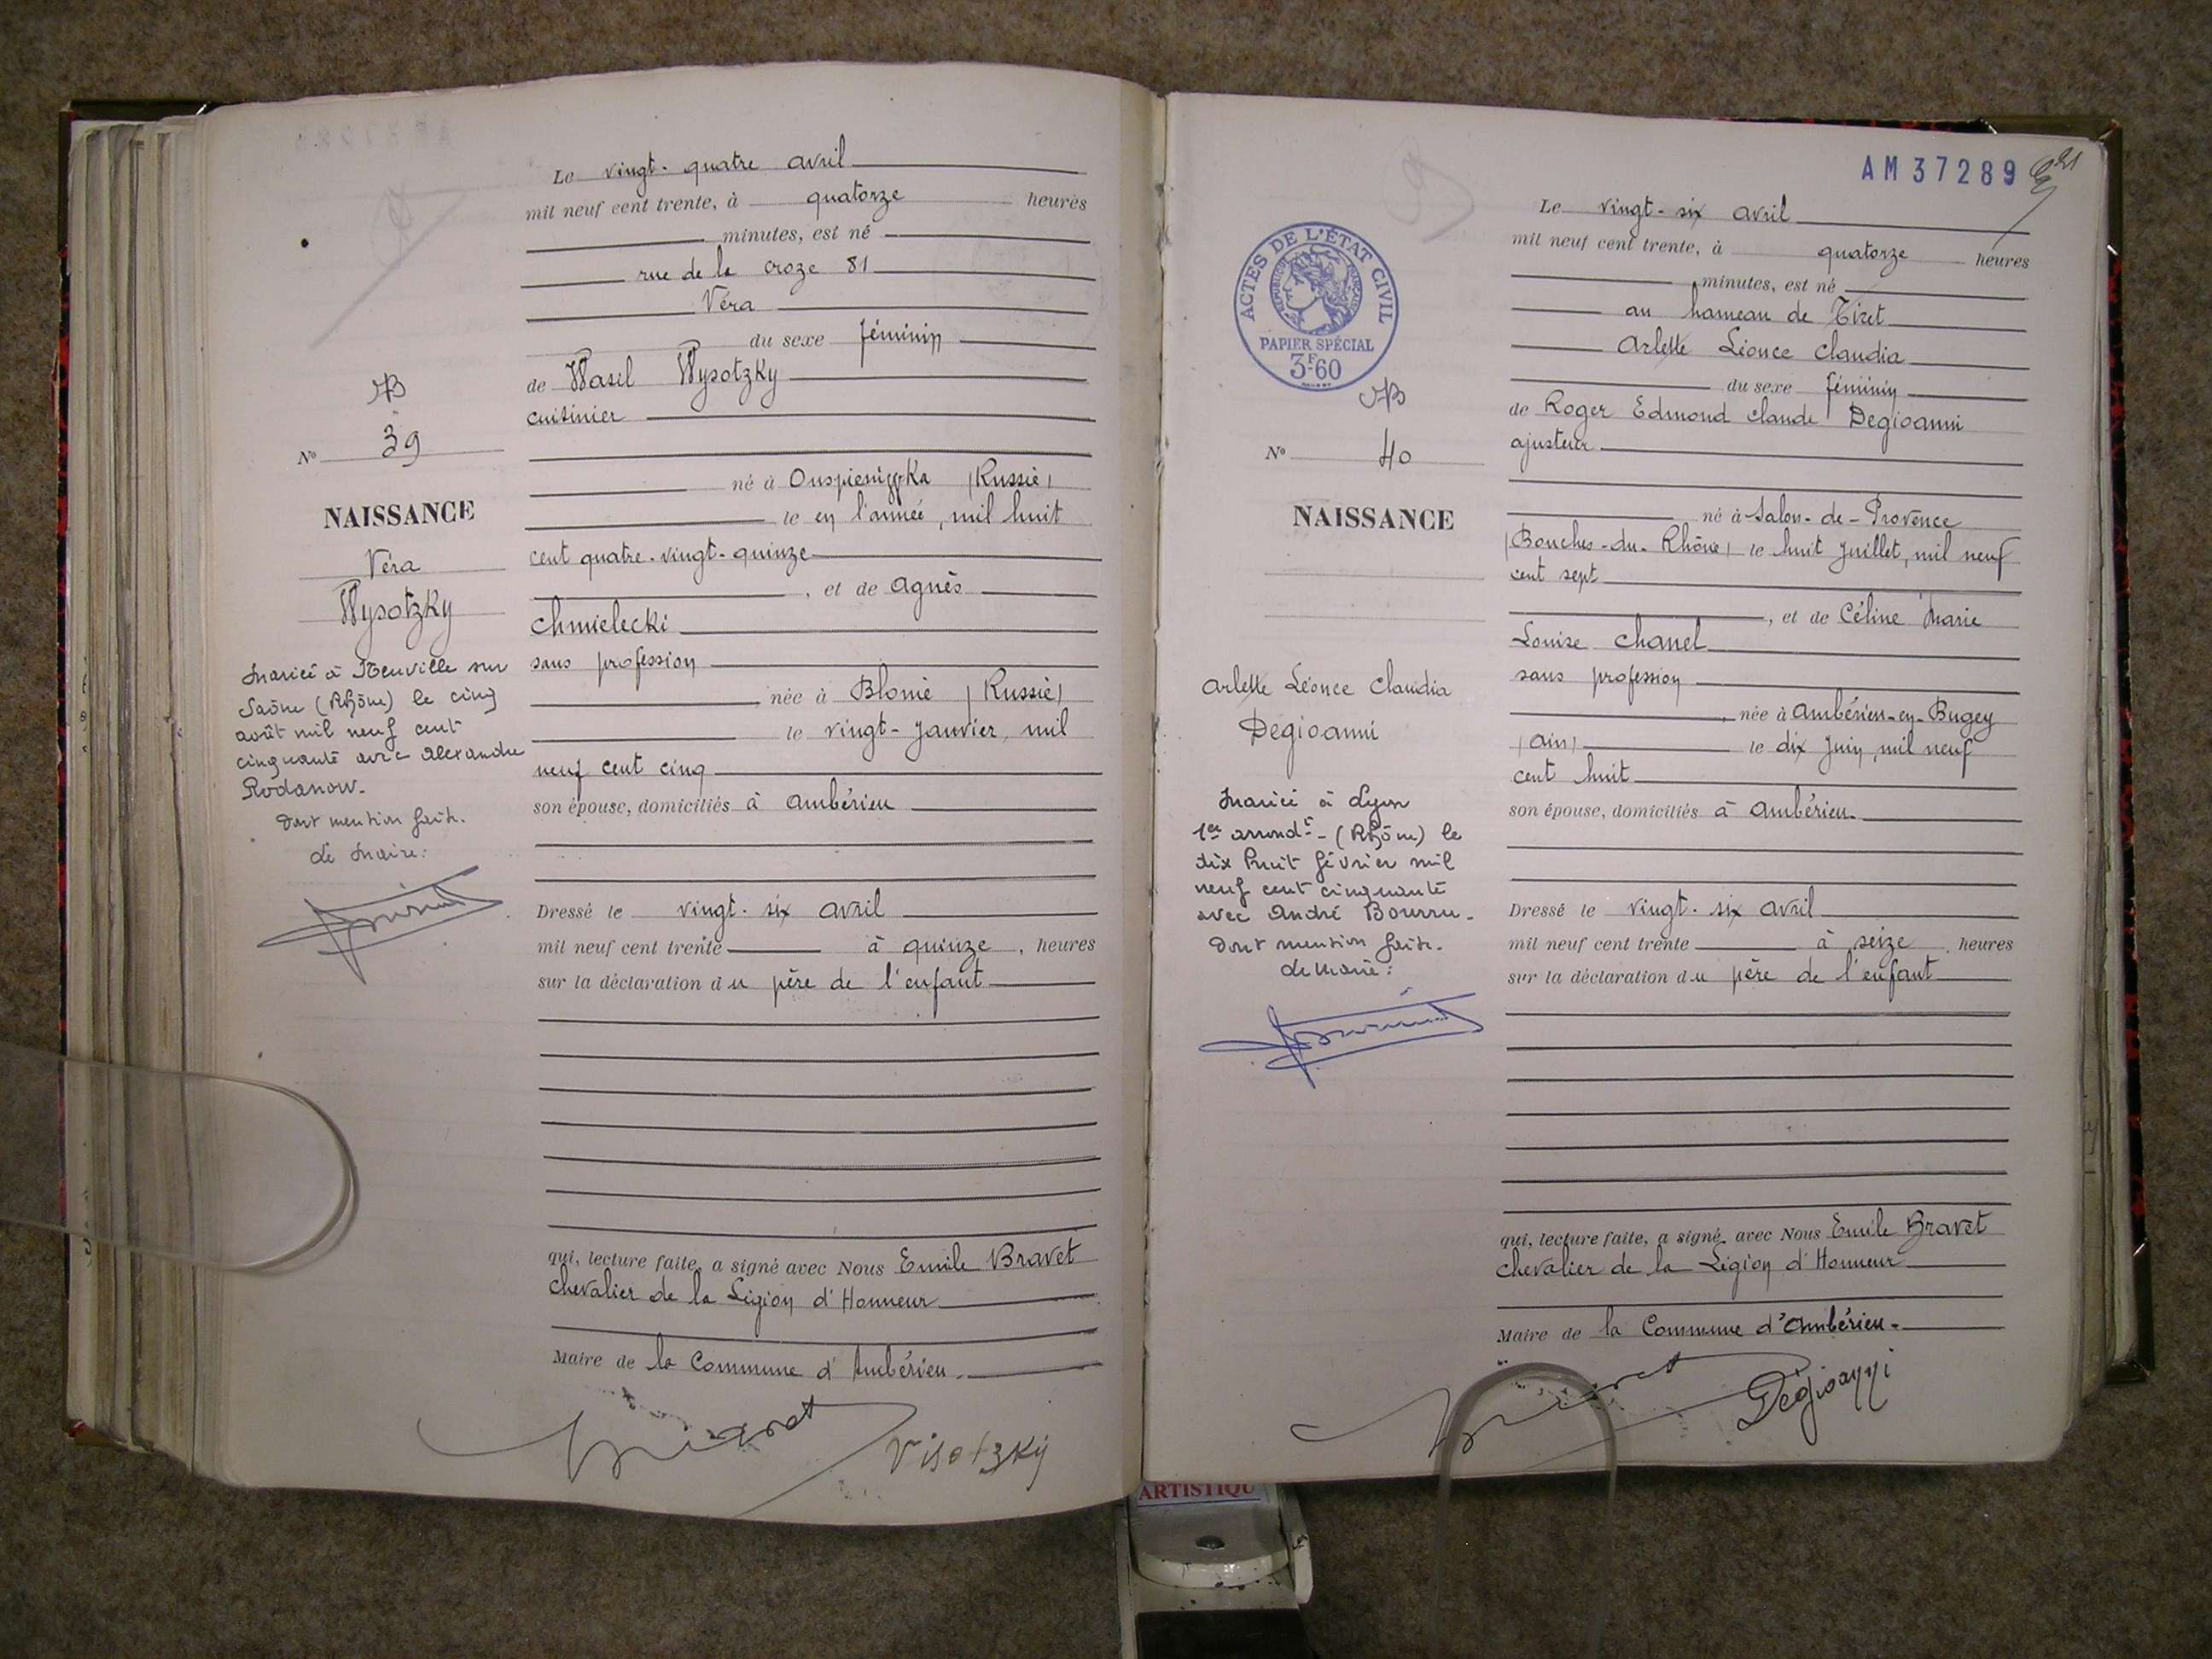 Le vingt-quatre avril
mil neuf cent trente, à quatorze heures
minutes, est né
rue de la croze 81
Véra
du sexe féminin
de Wasil Wysotzky
cuisinier
né à (Russie)
le en l'année, mil huit
cent quatre-vingt-quinze
, et de Agnès
Chmielecki
sans profession
née à Blonie (Russie)
le vingt-Janvier, mil
neuf cent cinq
son épouse, domiciliés à Ambérieu
Dressé le vingt-six avril
mil neuf cent trente à quinze, heures
sur la déclaration du père de l'enfant
qui, lecture faite, a signé avec Nous Emile Bravet
chevalier de la Légion d'Honneur
Maire de la Commune d'Ambérieu.
Visotzky
N° 39
NAISSANCE
Véra
Wysotzky
Mariée à Neuville sur
Saône (Rhône) le cinq
août mil neuf cent
cinquante avec Alexandre
Rodanow.
Dont mention faite.
Le Maire:
AM37289
ACTES DE L'ÉTAT CIVIL
RÉPUBLIQUE FRANÇAISE
PAPIER SPÉCIAL
3F60
N° 40
NAISSANCE
Arlette Léonce Claudia
Degioanni
Mariée à Lyon
1er arrondt - (Rhône) le
dix huit février mil
neuf cent cinquante
avec André Bourru.
Dont mention faite.
Le Maire:
Le vingt-six avril
mil neuf cent trente, à quatorze heures
minutes, est né
au hameau de Tiret
Arlette Léonce Claudia
du sexe féminin
de Roger Edmond Claude Degioanni
ajusteur
né à Salon-de-Provence
(Bouches-du-Rhône) le huit Juillet, mil neuf
cent sept
, et de Céline Marie
Louise Chanel
sans profession
née à Ambérieu-en-Bugey
(Ain) le dix Juin, mil neuf
cent huit
son épouse, domiciliés à Ambérieu.
Dressé le vingt-six avril
mil neuf cent trente à seize heures
sur la déclaration du père de l'enfant
qui, lecture faite, a signé avec Nous Emile Bravet
chevalier de la Légion d'Honneur
Maire de la Commune d'Ambérieu.
Degioanni
ARTISTIQU